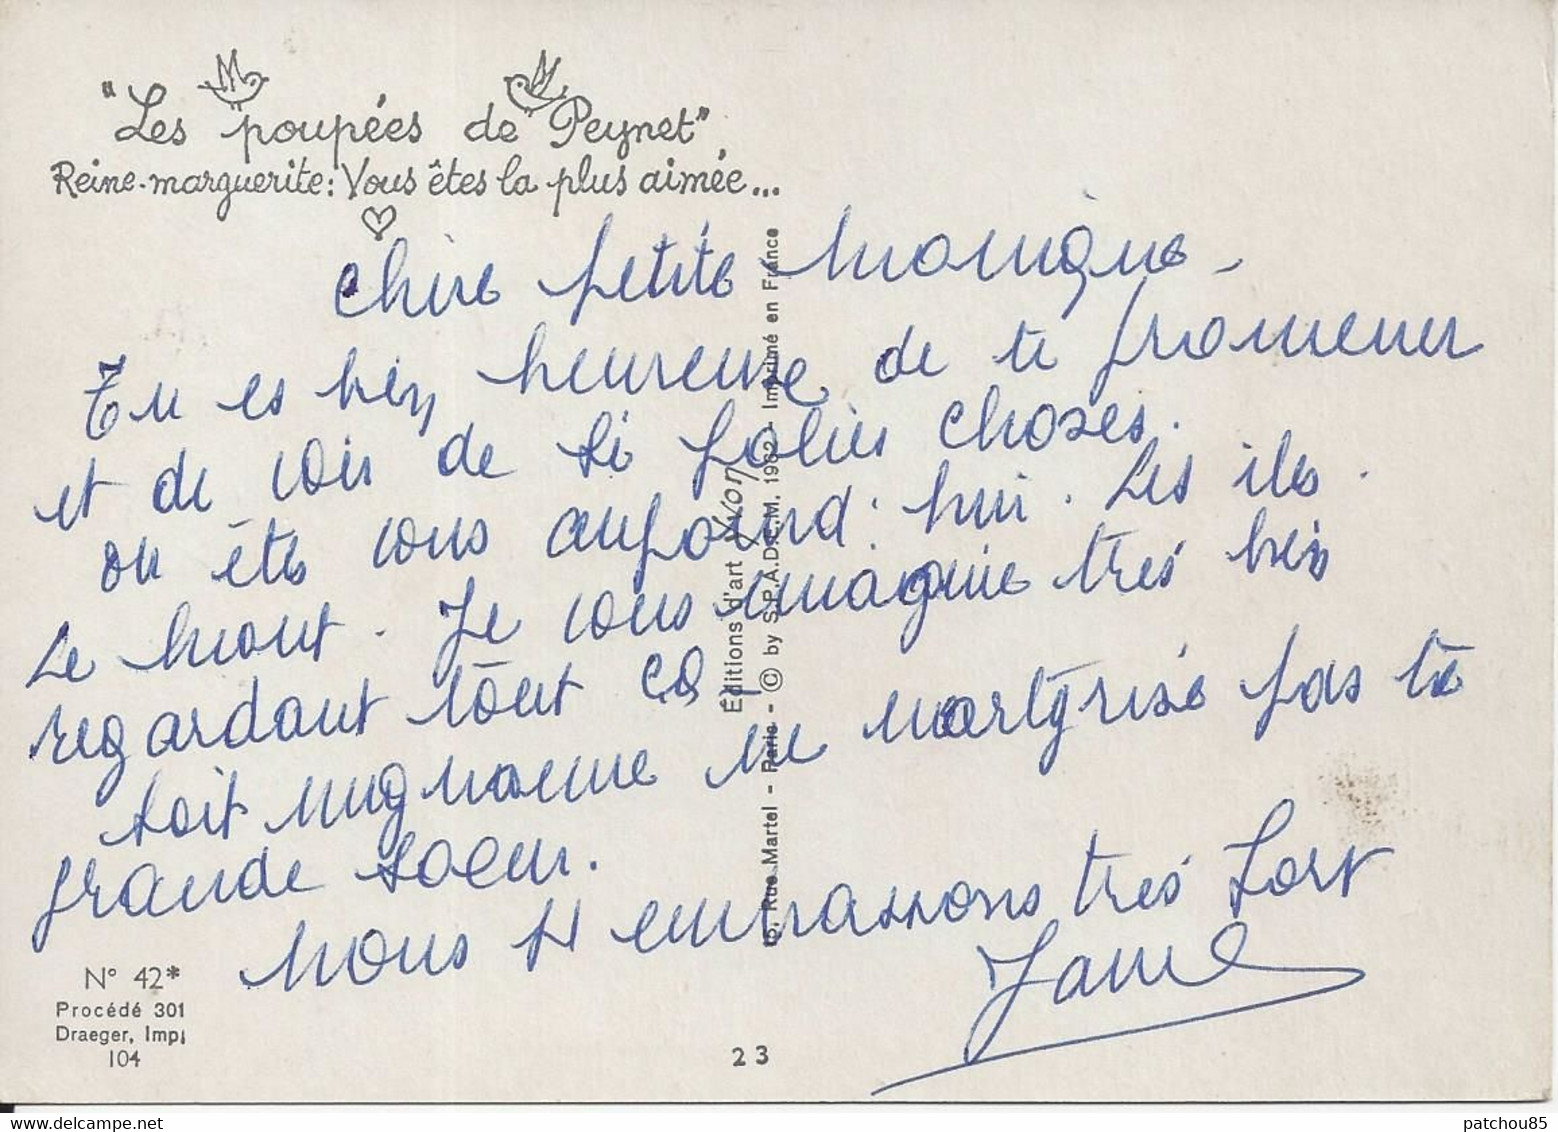 "Les poupées de Peynet"
Reine-marguerite: Vous êtes la plus aimée...
Chère petite Monique -
Tu es bien heureuse de te promener
et de voir de si jolies choses.
où êtes vous aujourd'hui. Les iles.
Le Mont. Je vous imagine très bien
regardant tout ça -
soit mignonne ne martyrise pas ta
grande soeur.
Nous t'embrassons très fort
Éditions d'art Yvon
15, Rue Martel - Paris - © by S.P.A.D.E.M. 1962 - Imprimé en France
N° 42*
Procédé 301
Draeger, Imp.
104
23
patchou85